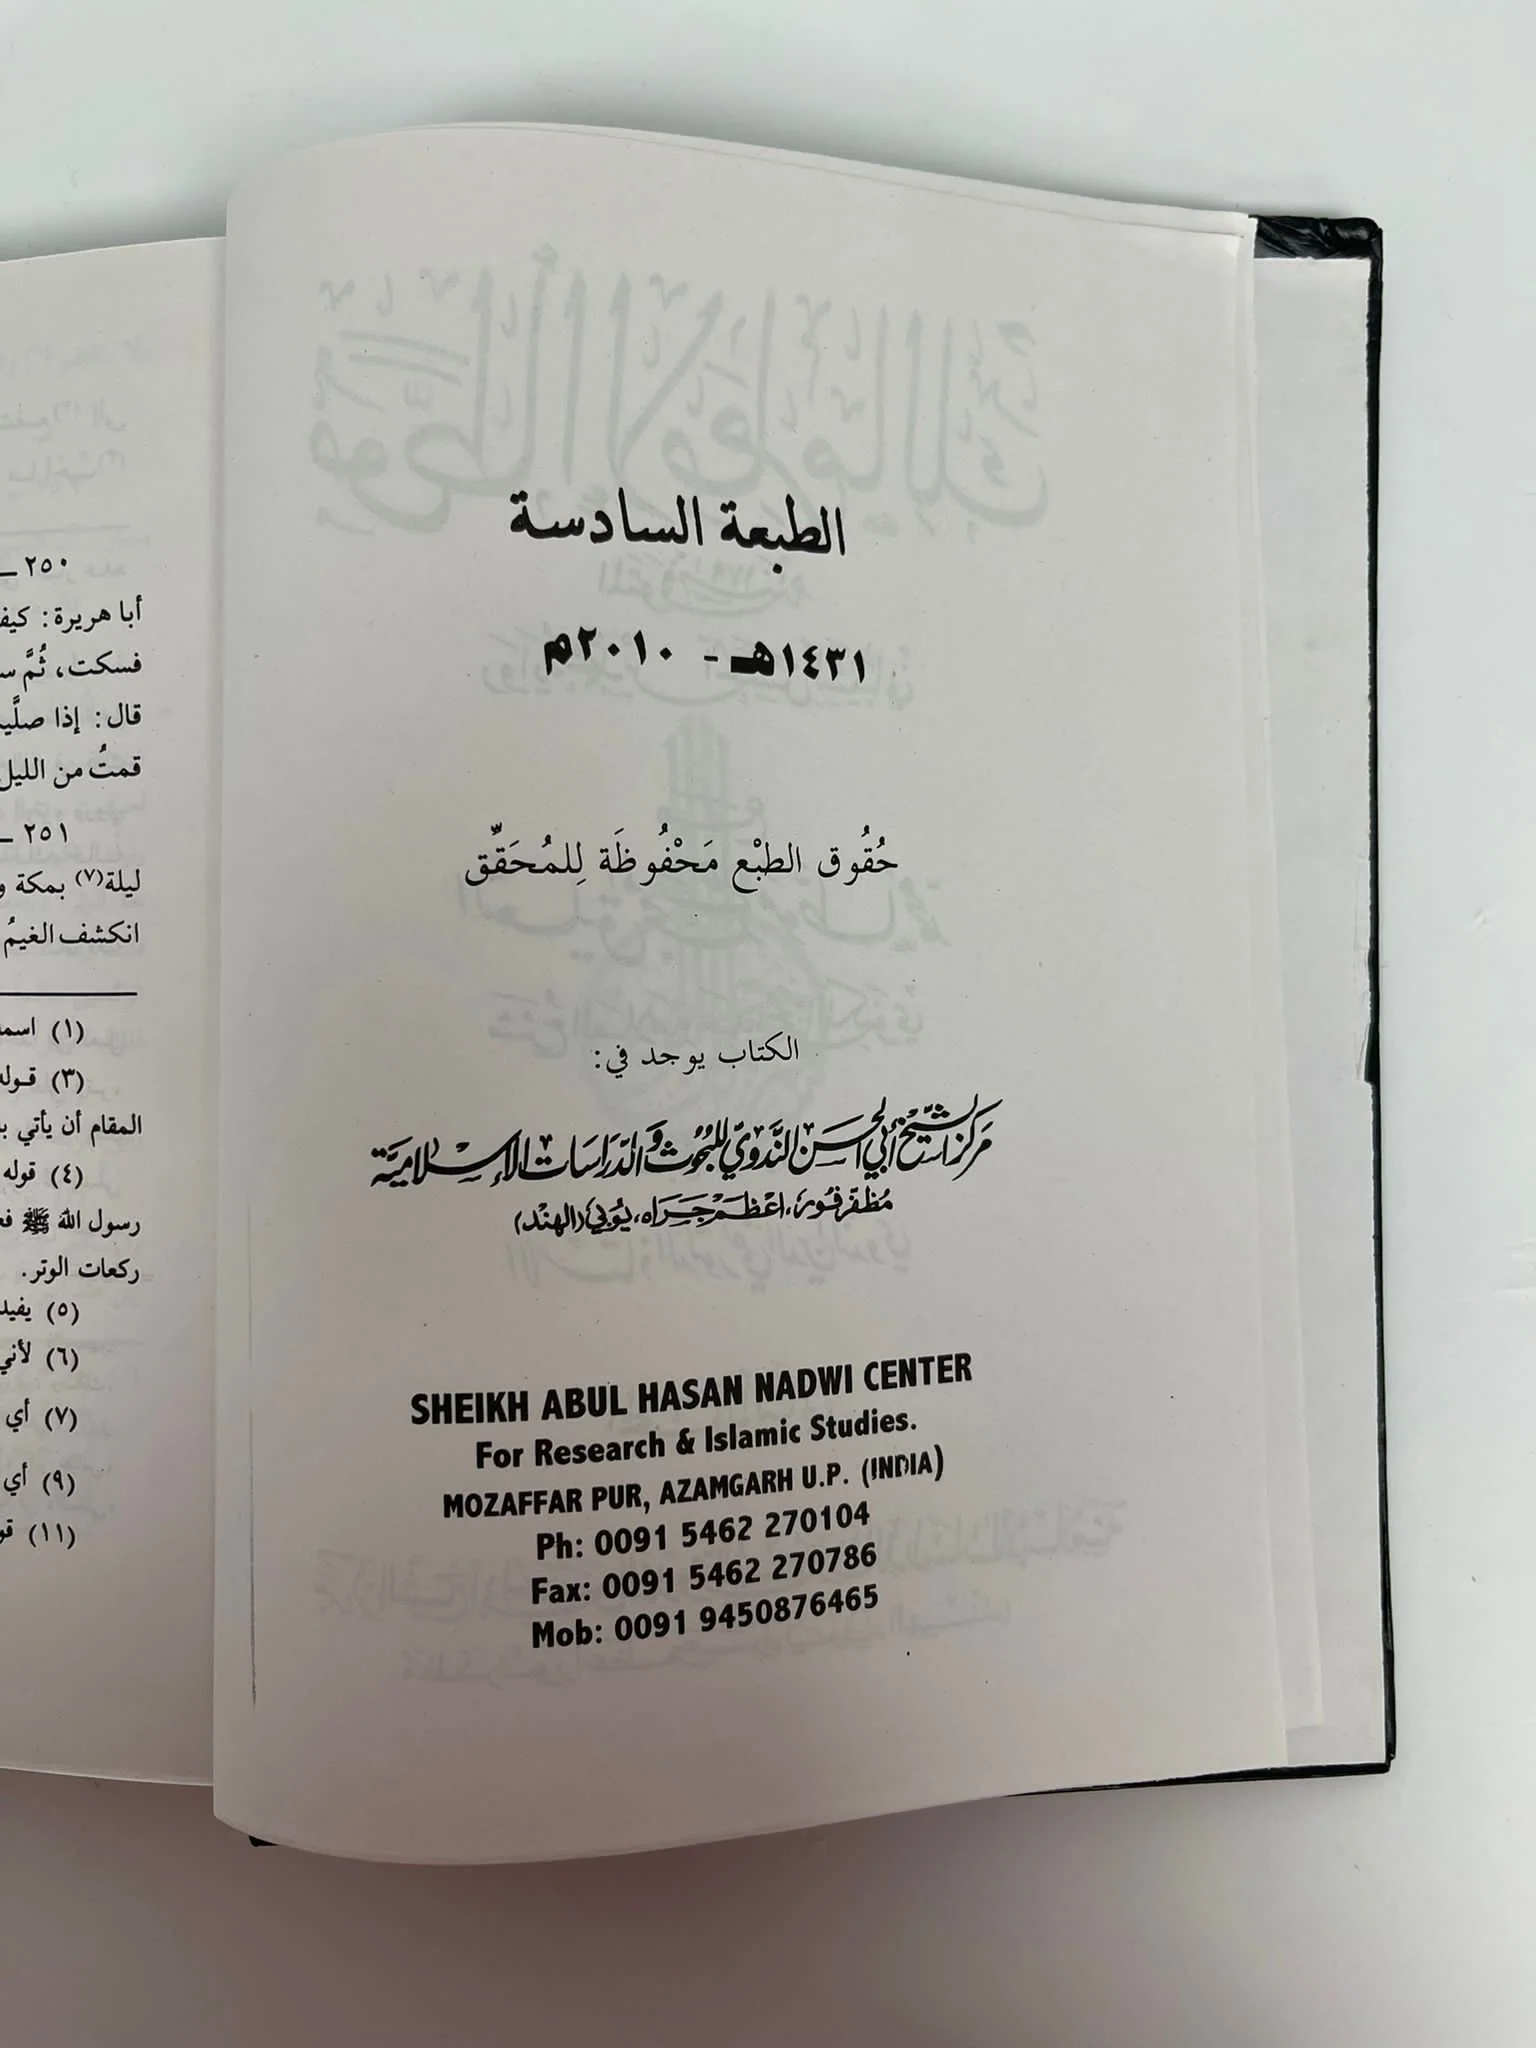 الطبعة السادسة
١٤٣١هـ - ٢٠١٠م
حُقُوق الطبْع مَحْفُوظَة لِلمُحَقِّق
الكتاب يوجد في:
مركز الشيخ أبي الحسن الندوي للبحوث والدراسات الإسلامية
مظفر فور، اعظم جراه، يوبي (الهند)
SHEIKH ABUL HASAN NADWI CENTER
For Research & Islamic Studies.
MOZAFFAR PUR, AZAMGARH U.P. (INDIA)
Ph: 0091 5462 270104
Fax: 0091 5462 270786
Mob: 0091 9450876465
٢٥٠ ـ
أبا هريرة: كيف
فسكت، ثُمَّ س
قال: إذا صلَّي
قمتُ من الليل
٢٥١ ـ
ليلة(٧) بمكة و
انكشف الغيمُ
(١) اسم
(٣) قوله
المقام أن يأتي ب
(٤) قوله
رسول الله ﷺ ف
ركعات الوتر.
(٥) يفيد
(٦) لأني
(٧) أي
(٩) أي
(١١) قو